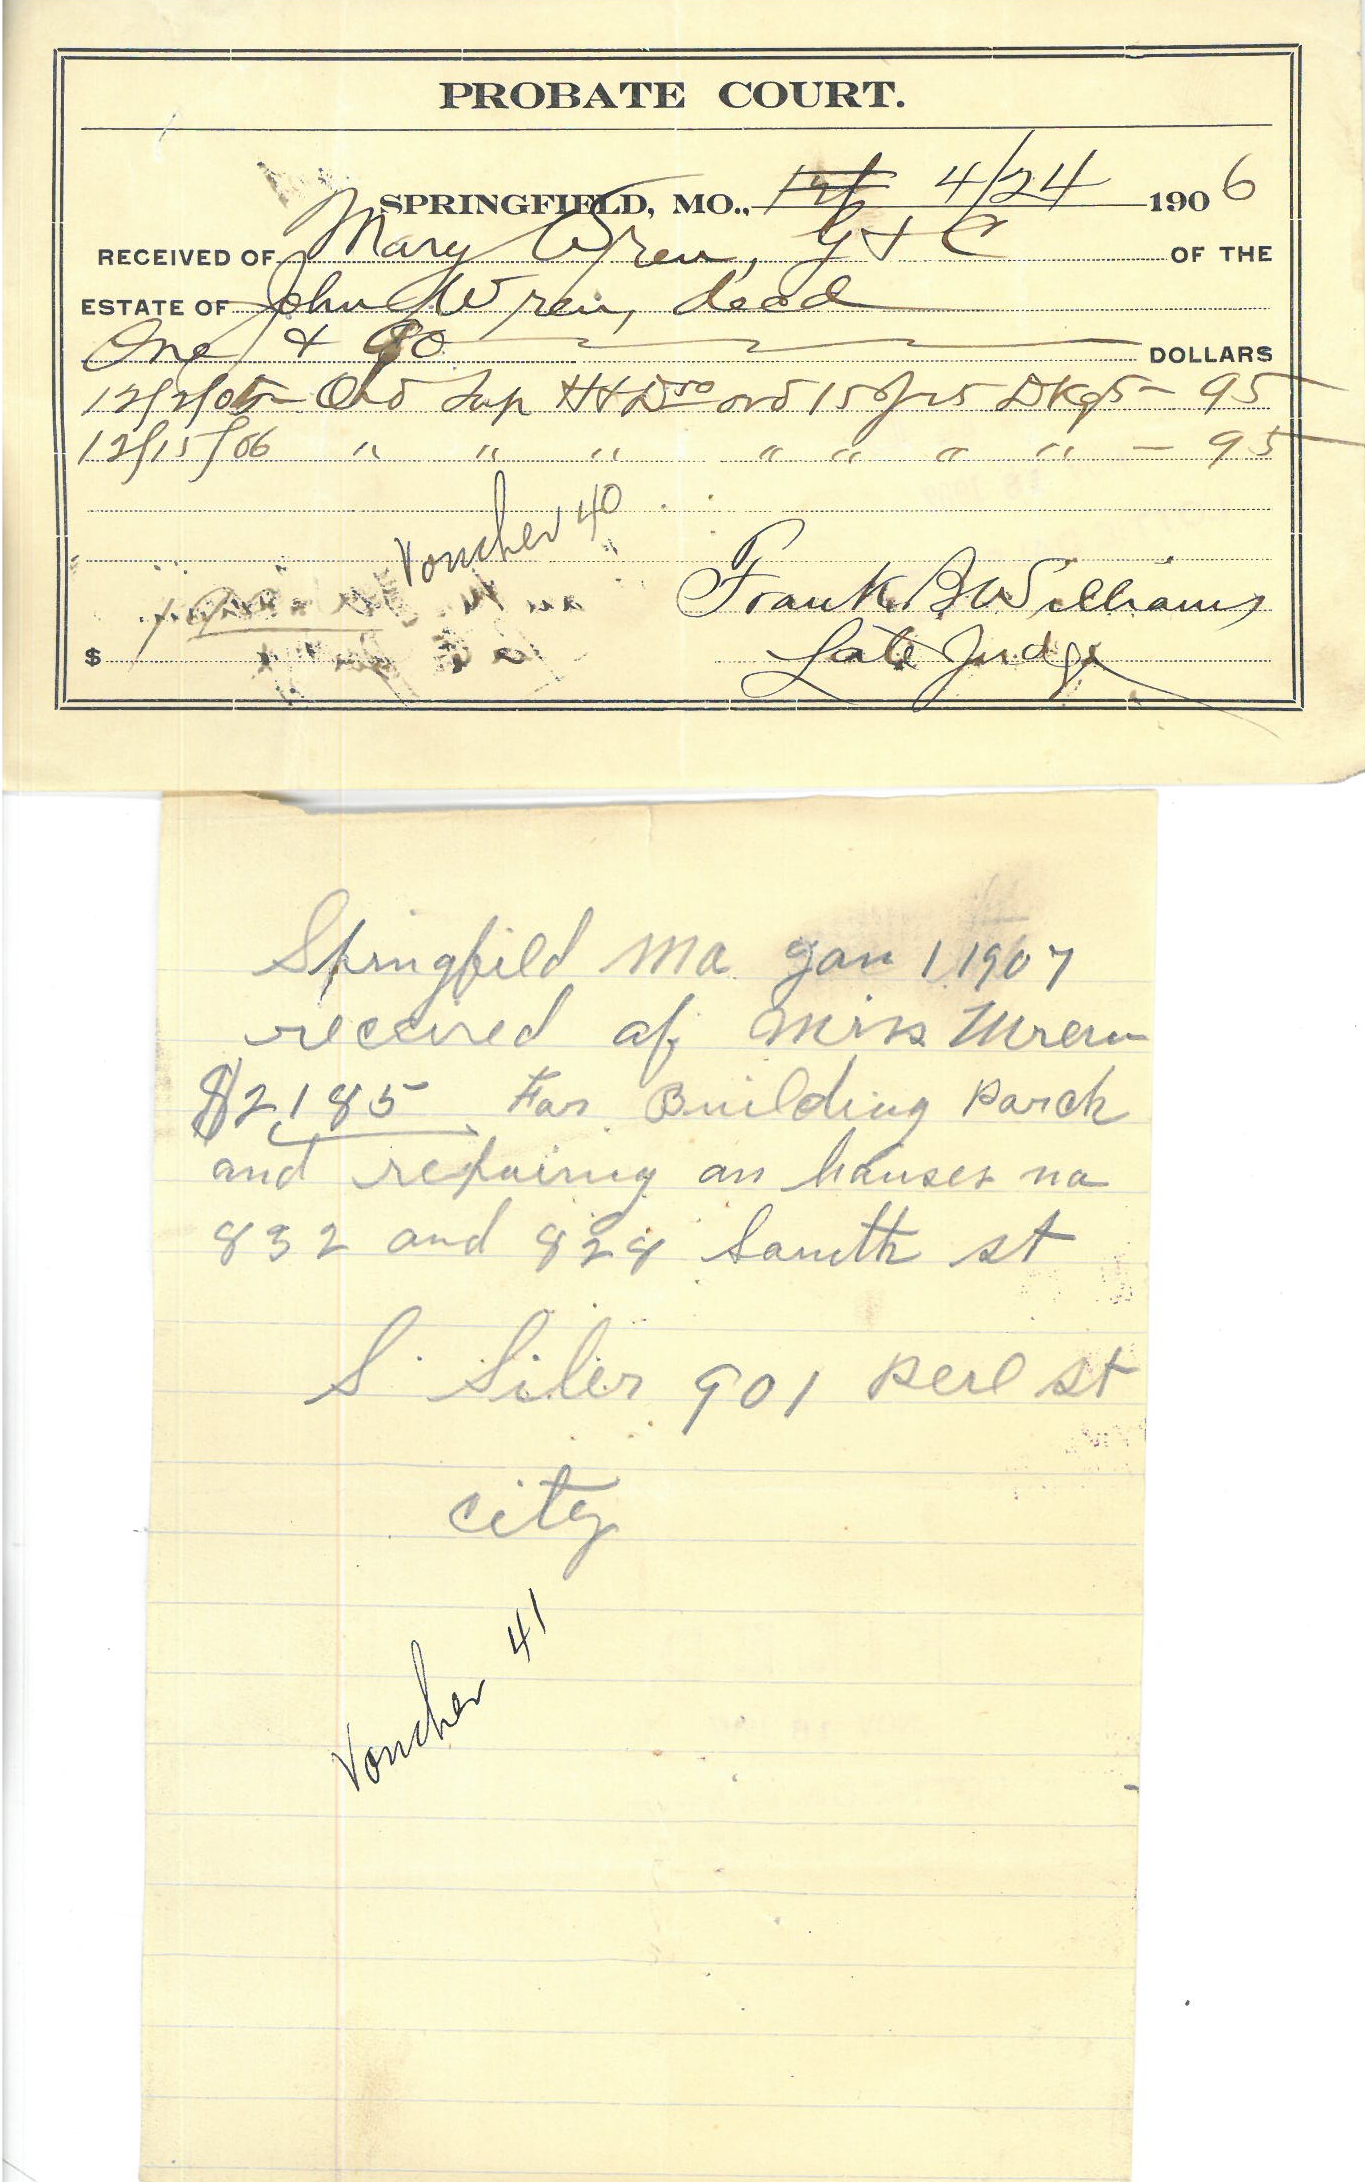 PROBATE COURT.
SPRINGFIELD, MO., 4/24 1906
RECEIVED OF Mary Wren, G & C OF THE
ESTATE OF John Wren, decd
One & 90 DOLLARS
12/2/05 Ord Sup ord 15 DKg5 - 95
12/15/06 " " " " " " " - 95
Voucher 40
Frank B Williams
$ Late Judge
Springfild Mo Jan 1 1907
received of Miss Wren
$21,85 For Building Porch
and repairing on houses no
832 and 828 South st
S. Siler 901 perl st
city
Voucher 41